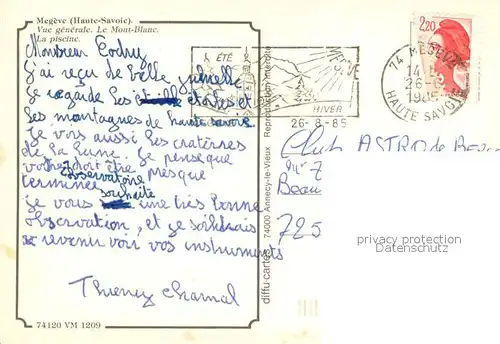 Megève (Haute-Savoie).
Vue générale. Le Mont-Blanc.
La piscine.
Monsieur
j'ai reçu de belle jumelle
je regarde les étoiles et
les montagnes de haute savoie
je vois aussi les cratères
de la lune. je pense que
votre observatoire doit être presque
terminée
je vous souhaite une très bonne
observation, et je souhaitrais
revenir voir vos instruments
Thierry
74120 VM 1209
diffu-cartes 74000 Annecy-le-Vieux Reproduction interdite
ÉTÉ
HIVER
26-8-85
74 MEGEVE
HAUTE SAVOIE
2,20
Club ASTRO de
Beau
725
privacy protection
watermark